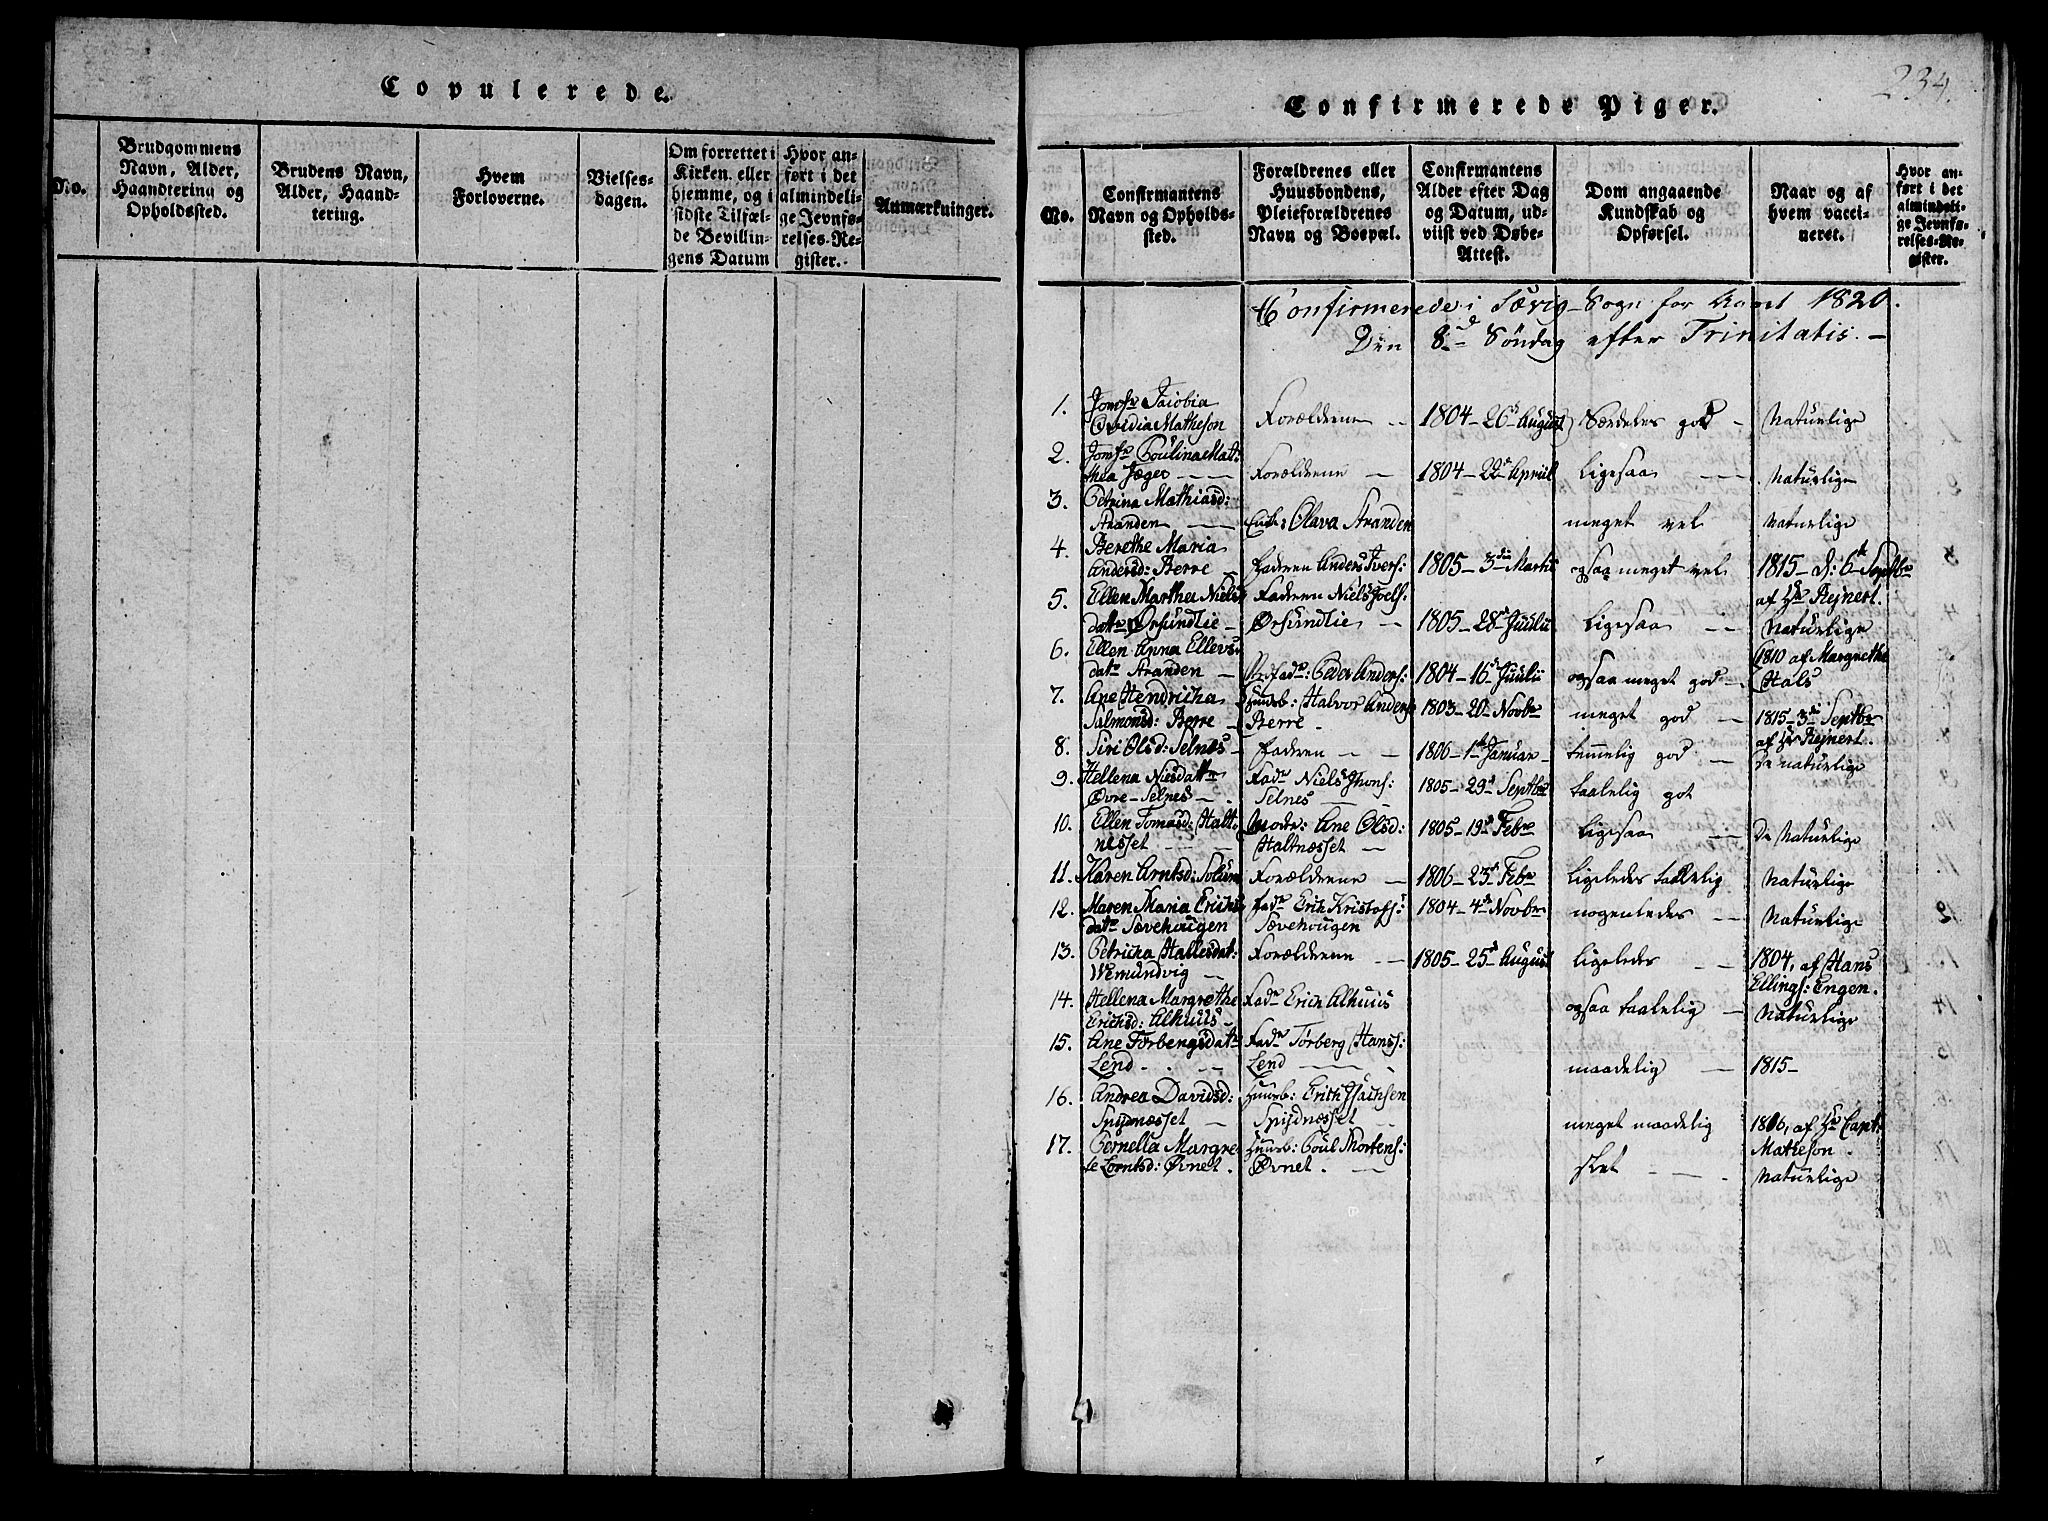 Copulerede.
No.
Brudgommens
Navn, Alder,
Haandtering og
Opholdssted.
Brudens Navn,
Alder, Haand-
tering.
Hvem
Forloverne.
Vielses-
dagen.
Om forrettet i
Kirken, eller
hiemme, og i
sidste Tilfæl-
de Bevillin-
gens Datum
Hvor an-
ført i det
almindeli-
ge Jevnfø-
relses-Re-
gister.
Anmærkninger.
234.
Confirmerede Piger.
No.
Confirmantens
Navn og Opholds-
sted.
Forældrenes eller
Huusbondens,
Pleieforældrenes
Navn og Boepæl.
Confirmantens
Alder efter Dag
og Datum, ud-
viist ved Døbe-
Attest.
Dom angaaende
Kundskab og
Opførsel.
Naar og af
hvem vacci-
neret.
Hvor an-
ført i det
almindeli-
ge Jevnfø-
relses-Re-
gister.
Confirmerede i Sogn for Aaret 1820.
Den 8de Søndag efter Trinitatis. –
1. Jomfr Jacobia
Ovidia Matheson Forældrene - - 1804 – 26d August Særdeles god – Naturlige
2. Jomfr Poulina Mat-
thea Jæger – – Forældrene – 1804 – 22d April Ligesaa – – Naturlige
3. Petrina Mathiasd:
Stranden – Enk: Olava Stranden meget vel Naturlige
4. Berethe Maria
Andersd: Berre – Faderen Anders Ivers: 1805 – 3die Martii ogsaa meget vel 1815 – d: 6te Septbr
af Hr Rejnert.
5. Ellen Marthea Niels
datr Ørsundlie – Faderen Niels Joels:
Ørsundlie – – 1805 – 28d Juulii Ligesaa – – Naturlige
6. Ellen Anna Ellevs
datr Stranden – fadr: Peder Anders: 1804 – 16d Juulii ogsaa meget god – 1810 af Margrethe
Hals
7. Ane Hendricha
Salmonsd: Berre – Huusb: Halvor Anders
Berre – 1803 – 20d Novbr meget god – 1815 – 3die Septbr
af Hr Rejnert.
8. Siri Olsd: Selnes – Faderen – – 1806 – 1ste Januar – temmelig god – De naturlige
9. Hellena Niesdattr
Øvre – Selnes – . Fadr Niels Jhons:
Selnes – 1805 – 29d Septbr taalelig got
10. Ellen Tomasd: Halt-
nesset – – Moder: Ane Olsd:
Haltnæsset – 1805 – 19d Febr Ligesaa – De Naturlige
11. Karen Arntsd: Solum Forældrene – 1806 – 23d Febr Ligeledes taalelig Naturlige
12. Maren Maria Erichs
datr Sævehougen Fadr Erik Kristofs:
Sævehougen 1804 – 4de Novbr nogenledes – – Naturlige
13. Petricha Hallesdat:
Wemundvig – Forældrene – – 1805 – 25d August ligeledes – – 1804, af Hans
Ellings: Engen.
14. Hellena Margrethe
Erichsd: Alhuus – Fadr Erich Alhuus ogsaa taalelig – Naturlige
15. Ane Torbergsdatr
Lend . . – Fadr Torberg Hans:
Lend – – maadelig – 1815 –
16. Andrea Davidsd:
Spijdnæsset – Huusb: Erich
Spijdnæsset – meget maadelig 1816, af Hr Capt:
Matheson.
17. Pernella Margre-
te Lorntsd: Øvnet. Huusb: Poul Mortens:
Øvnet. – slet – – Naturlige